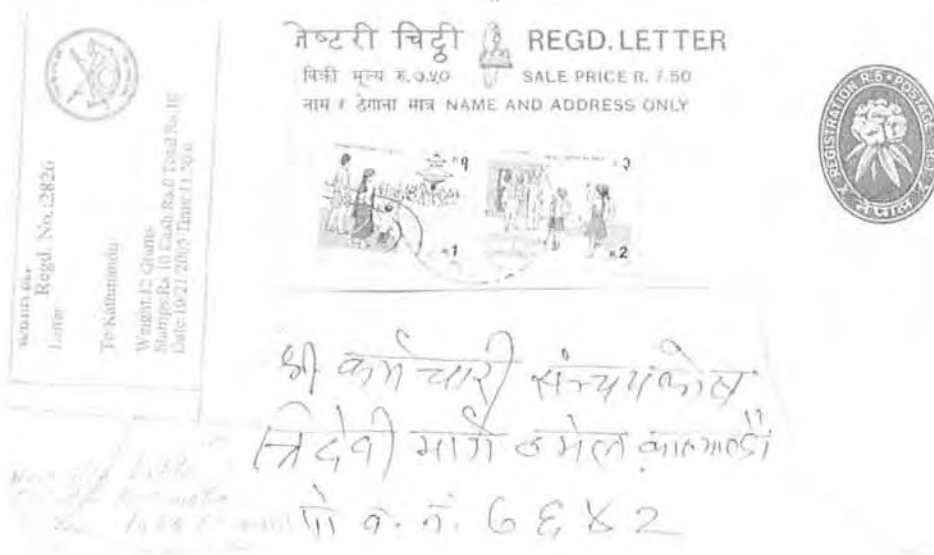 रजिष्टरी चिट्ठी REGD. LETTER
विक्री मूल्य रु. ७.५० SALE PRICE R. 7.50
नाम र ठेगाना मात्र NAME AND ADDRESS ONLY
REGISTRATION R.5 • POSTAGE
नेपाल
१
२
1
2
Regd. No.:2826
Letter
To:Kathmandu
Weight:12 Grams
Stamps:Rs.10 Cash:Rs.0 Total Rs.10
श्री कर्मचारी संन्चयकोष
त्रिदेवी मार्ग ठमेल काठमाण्डौ
पो ब. नं. ७६४२